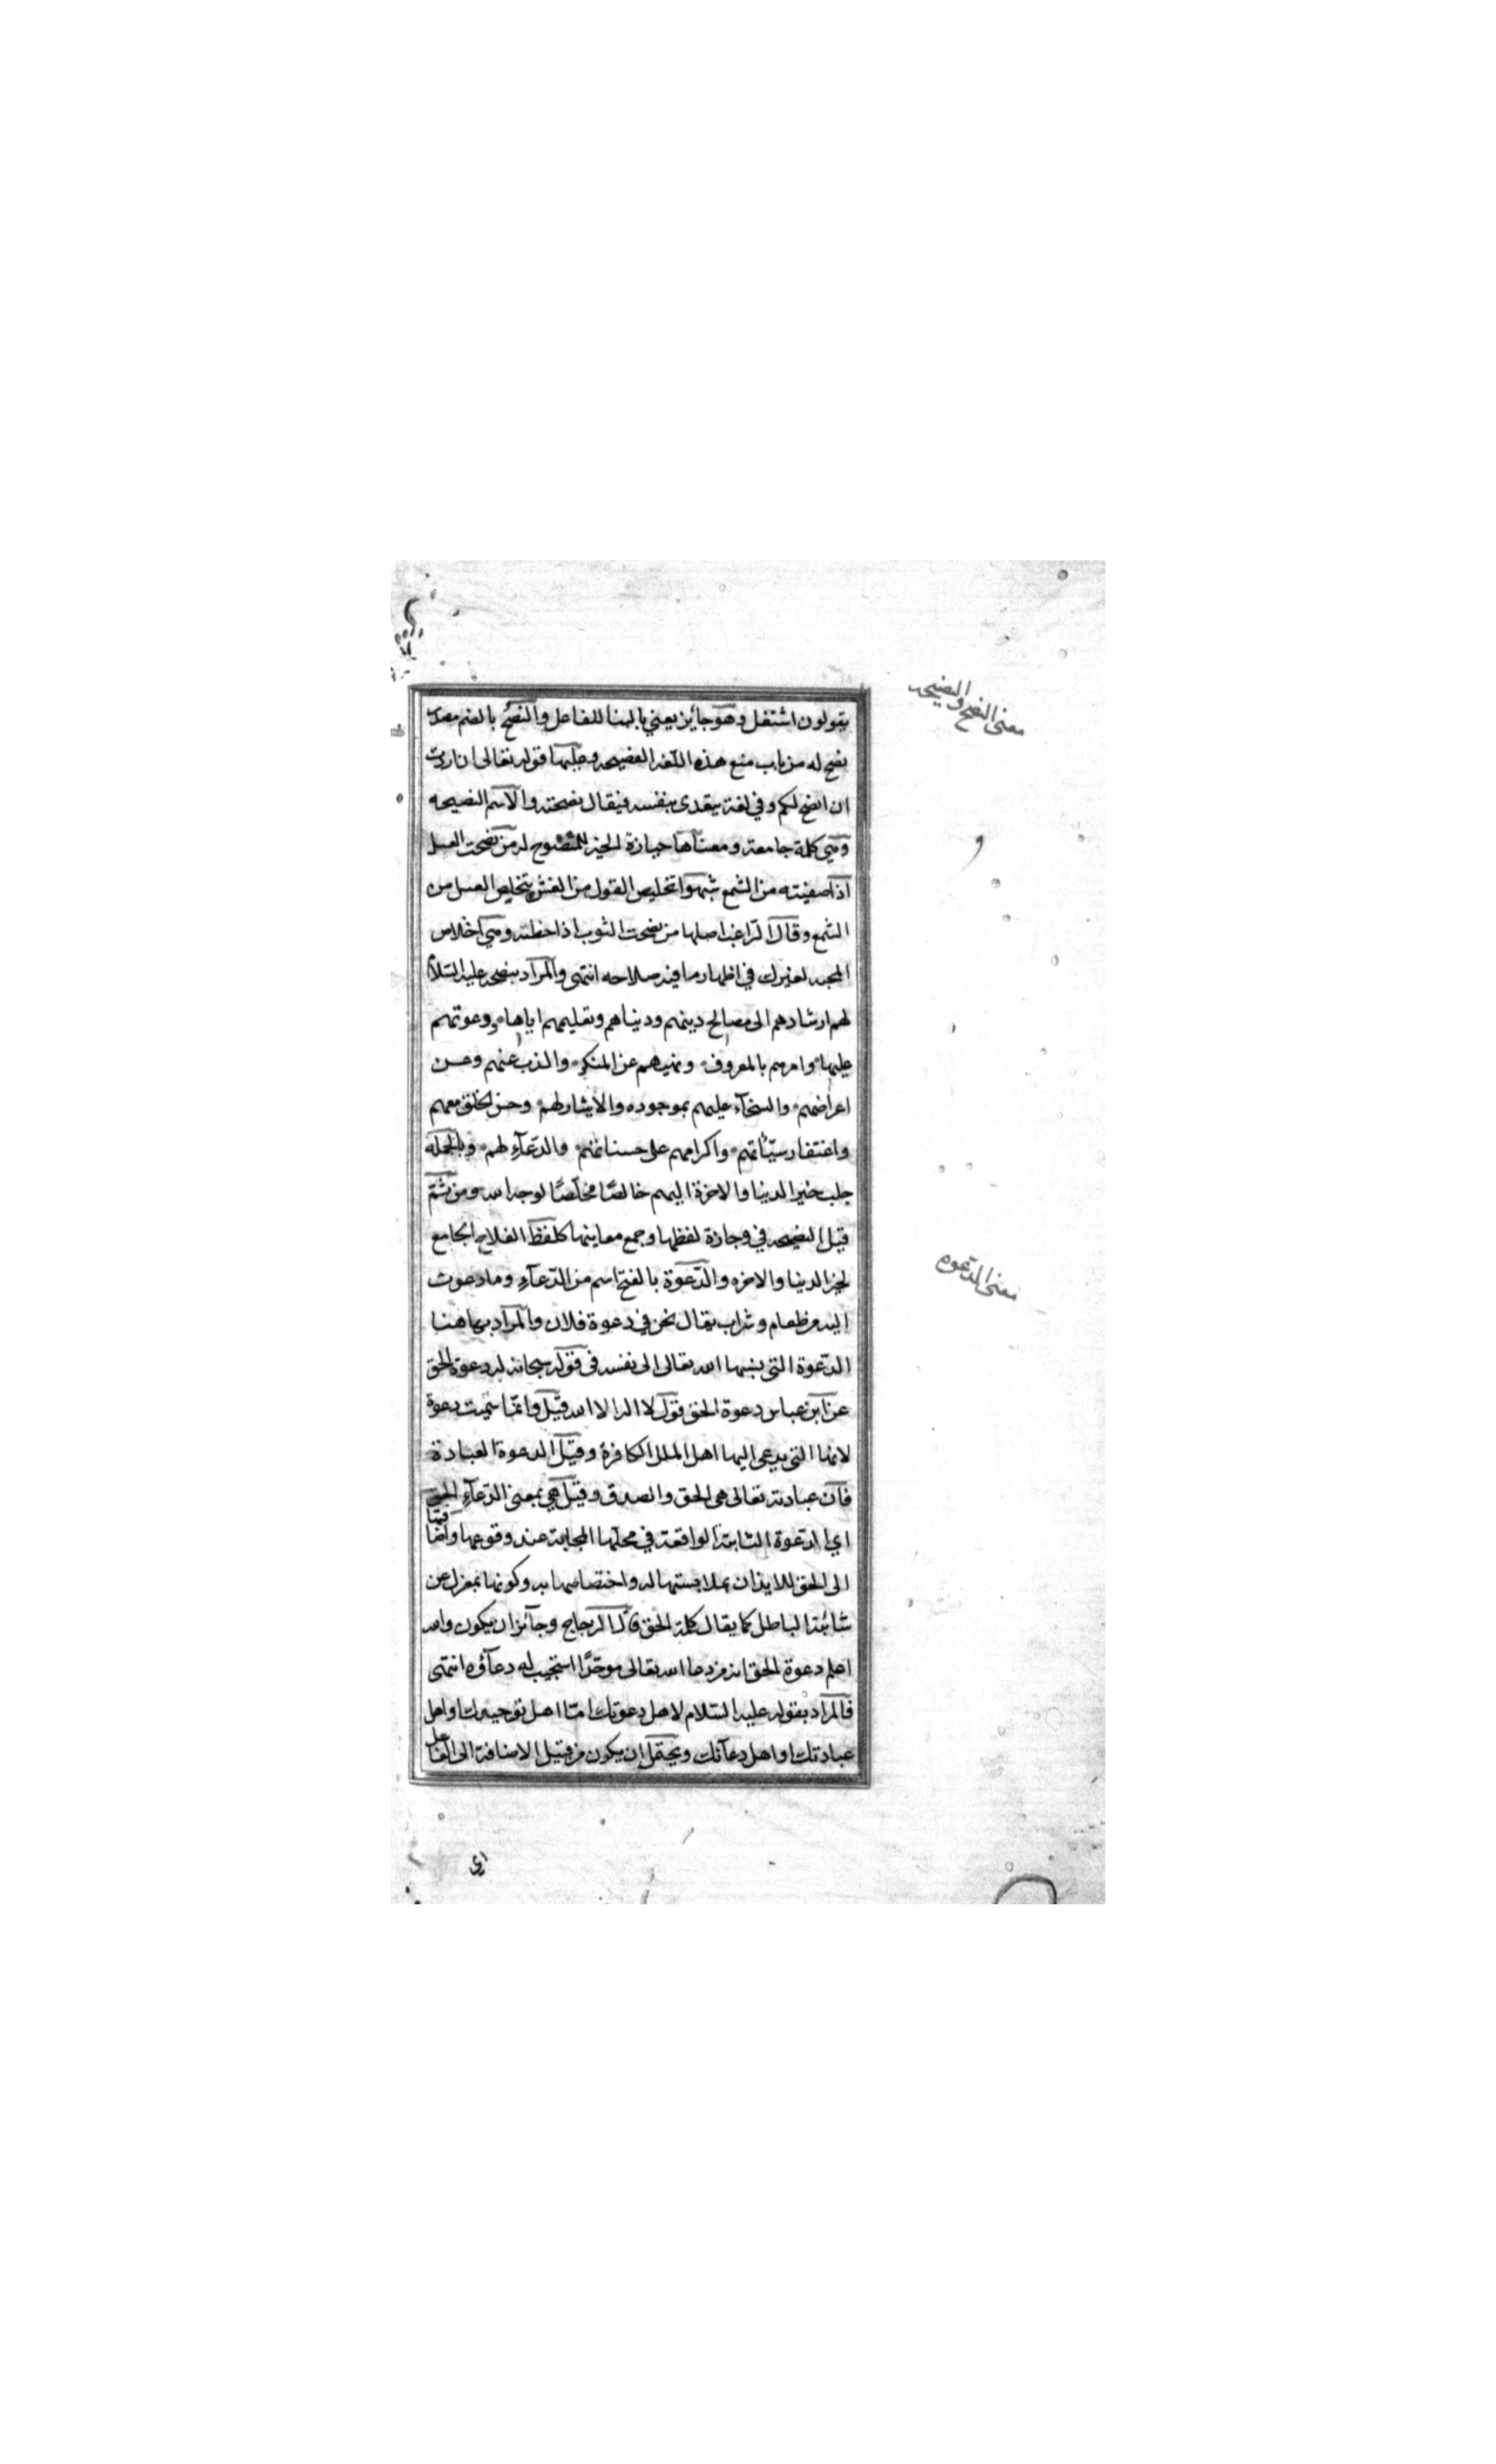 معنى النصح والنصيحه
يقولون اشتغل وهو جايز يعني بالبنا للفاعل والنصح بالضم مصدر
نصح له من باب منع هذه اللغة الفصيحه وعليها قوله تعالى ان اردت
ان انصح لكم وفي لغة يتعدى بنفسه فيقال نصحته والاسم النصيحه
وهي كلمة جامعة ومعناها حيازة الخير للمنصوح له من نصحت العسل
اذا صفيته من الشمع شبهوا تخليص القول من الغش بتخليص العسل من
الشمع وقال الراغب اصلها من نصحت الثوب اذا خطته وهي اخلاص
المحبه لغيرك في اظهار ما فيه صلاحه انتهى والمراد بنصحه عليه السلام
لهم ارشادهم الى مصالح دينهم ودنياهم وتعليمهم اياها ودعوتهم
عليها وامرهم بالمعروف ونهيهم عن المنكر والذب عنهم وعن
اعراضهم والسخآء عليهم بموجوده والايثار لهم وحسن الخلق معهم
واغتفار سيّئاتهم واكرامهم على حسناتهم والدّعآء لهم وبالجمله
جلب خير الدنيا والاخرة اليهم خالصًا مخلصًا لوجه الله ومن ثمّ
قيل النصيحه في وجازة لفظها وجمع معاينها كلفظ الفلاح الجامع
لخير الدنيا والاخره والدّعوة بالفتح اسم من الدّعآء وما دعوت
معنى الدّعوه
اليه من طعام وشراب يقال نحن في دعوة فلان والمراد بها هنا
الدّعوة التي نسبها الله تعالى الى نفسه في قوله سبحانه له دعوة الحق
عن ابن عباس دعوة الحق قول لا اله الا الله قيل وانّما سميت دعوة
لانها التي يدعى اليها اهل الملل الكافرة وقيل الدعوة العبادة
فان عبادته تعالى هي الحق والصدق وقيل هي بمعنى الدّعآء الحق
اي الدعوة الثابتة الواقعة في محلها المجابة عند وقوعها واضافتها
الى الحق للايذان بملابستها له واختصاصها به وكونها بمعزل عن
شائبة الباطل كما يقال كلمة الحق قال الزجاج وجآئز ان يكون والله
اعلم دعوة الحق انه من دعا الله تعالى موحّدًا استجيب له دعآؤه انتهى
فالمراد بقوله عليه السّلام لاهل دعوتك امّا اهل توحيدك او اهل
عبادتك او اهل دعآئك ويحتمل ان يكون من قبيل الاضافة الى الفاعل
اي